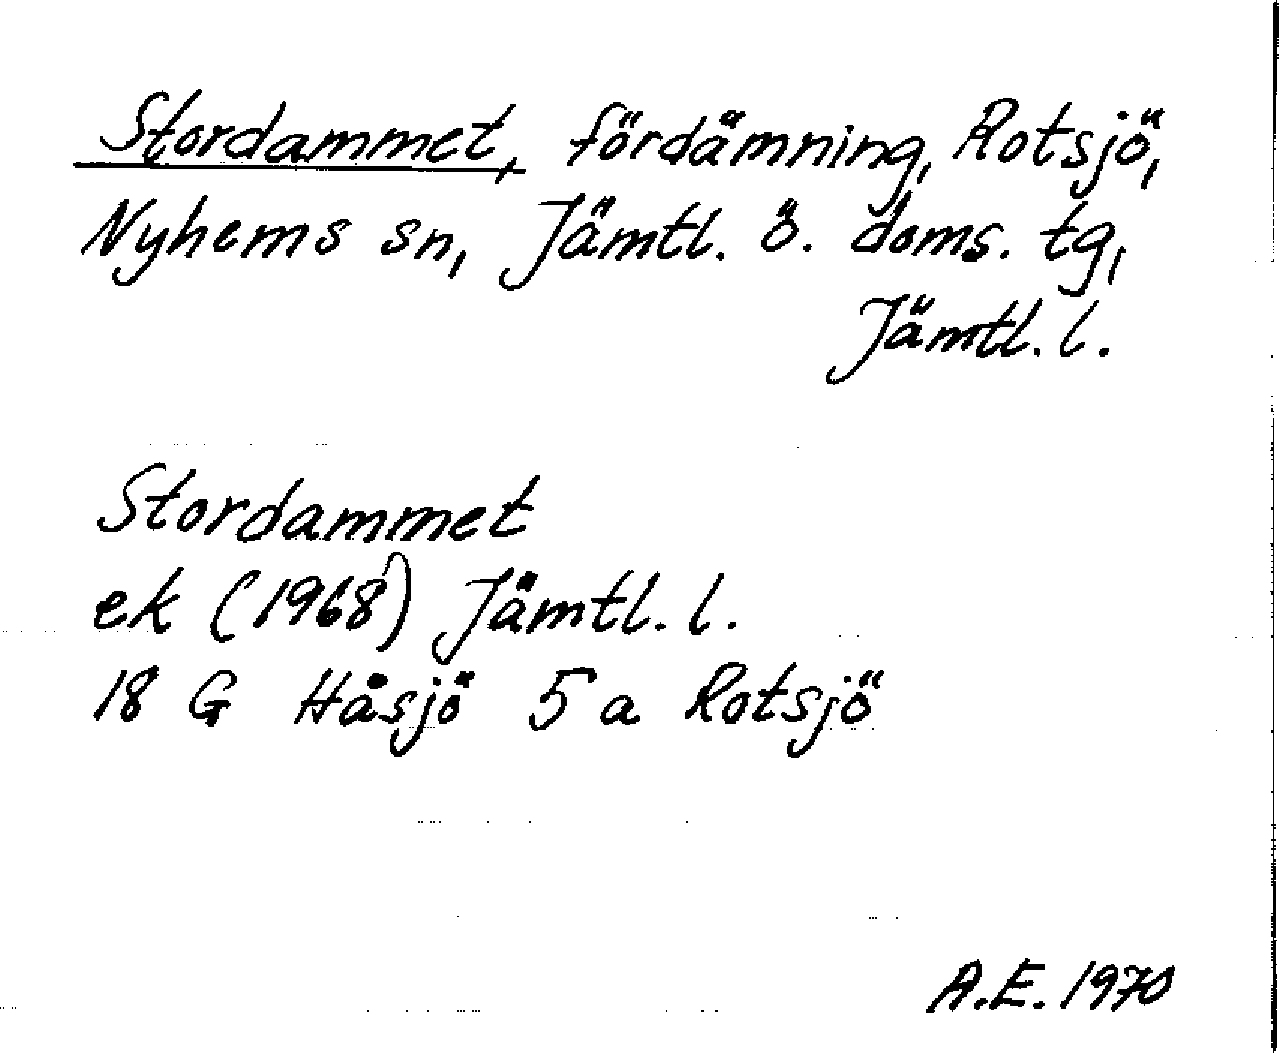 Stordammet, fördämning, Rotsjö,
Nyhems sn, Jämtl. ö. doms. tg,
Jämtl. l.
Stordammet
ek (1968) Jämtl. l.
18 G Håsjö 5 a Rotsjö
A.E. 1970